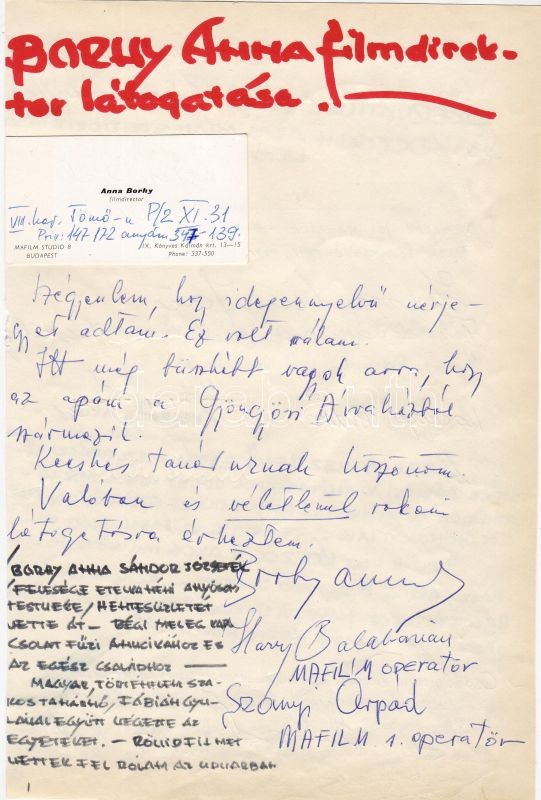 BORHY ANNA filmdirek-
tor látogatása!
Anna Borhy
filmdirector
VIII. ker. Tömő-u P/2 XI. 31
Priv: 147 172 anyám 347-139.
MAFILM STUDIO B
BUDAPEST
IX. Könyves Kálmán krt. 13—15
Phone: 337-550
Szégyenlem, hogy idegennyelvű névje-
gyet adtam. Ez volt nálam.
Itt még büszkébb vagyok arra, hogy
az apám a Gyöngyösi Árvaházból
származik.
Kecskés tanár úrnak köszönöm.
Valóban és véletlenül rokoni
látogatásra érkeztem.
Borhy Anna
Harry Balabanian
MAFILM operatőr
Szányi Árpád
MAFILM s. operatőr
BORHY ANNA SÁNDOR JÓZSEFÉK
/FELESÉGE ETELKA NÉNI ANYÓSA
TESTVÉRE/ HENTESÜZLETÉT
VETTE ÁT — RÉGI MELEG KAP
CSOLAT FŰZI ANNCIKÁHOZ ÉS
AZ EGÉSZ CSALÁDHOZ —
MAGYAR, TÖRTÉNELEM SZA
KOS TANÁRNŐ, FÁBIÁN GYU-
LÁVAL EGYÜTT VÉGEZTE AZ
EGYETEMET. — RÖVID FILMET
VETTEK FEL RÓLAM AZ UDVARBAN